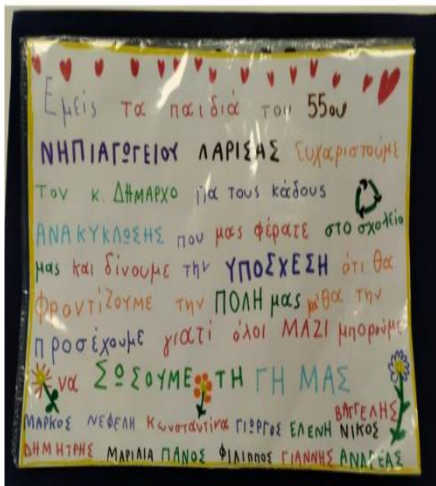 Εμείς τα παιδιά του 55ου
ΝΗΠΙΑΓΩΓΕΙΟΥ ΛΑΡΙΣΗΣ Ευχαριστούμε
τον κ. ΔΗΜΑΡΧΟ για τους κάδους
ΑΝΑΚΥΚΛΩΣΗΣ που μας φέρατε στο σχολείο
μας και δίνουμε την ΥΠΟΣΧΕΣΗ ότι θα
φροντίζουμε την ΠΟΛΗ μας θα την
προσέχουμε γιατί όλοι ΜΑΖΙ μπορούμε
να ΣΩΣΟΥΜΕ ΤΗ ΓΗ ΜΑΣ
ΒΑΓΓΕΛΗΣ
ΜΑΡΚΟΣ ΝΕΦΕΛΗ Κωνσταντίνα ΓΙΩΡΓΟΣ ΕΛΕΝΗ ΝΙΚΟΣ
ΔΗΜΗΤΡΗΣ ΜΑΡΙΛΙΑ ΠΑΝΟΣ ΦΙΛΙΠΠΟΣ ΓΙΑΝΝΗΣ ΑΝΔΡΕΑΣ